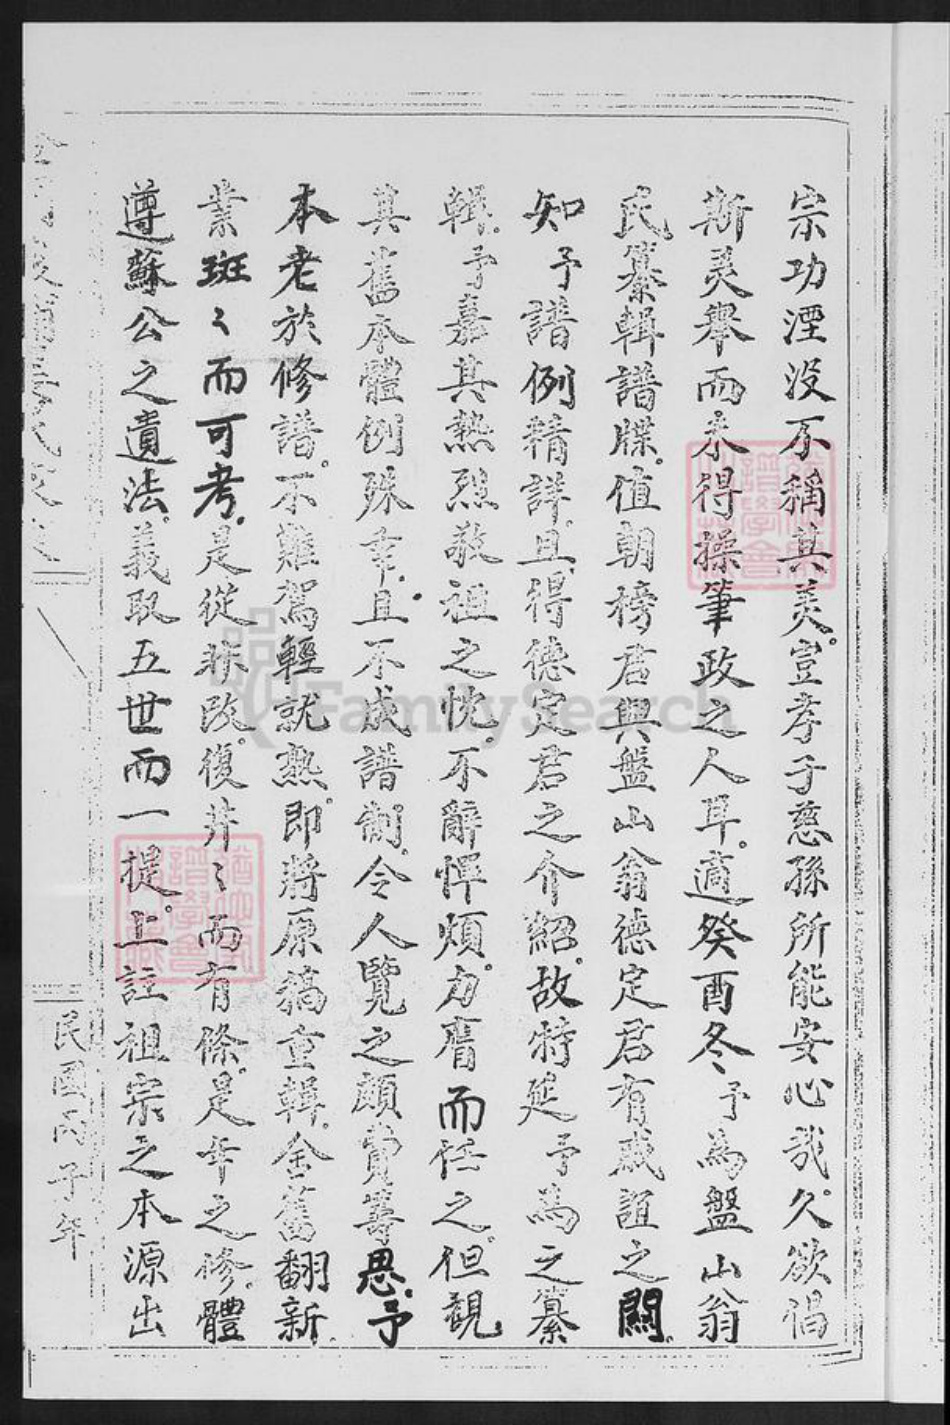 宗功湮没不稱其美豈孝子慈孫所能安心哉久欲倡
斯美舉而未得操筆政之人耳適癸酉冬予為盤山翁
氏纂輯譜牒值朝榜君與盤山翁德定君有戚誼之關
知予譜例精詳且得德定君之介紹故特延予為之纂
輯予嘉其熱烈敬祖之忱不辭憚煩力膺而任之但觀
其舊本體例殊乖且不成譜制令人覽之頗費籌思予
本老於修譜不難駕輕就熟即將原稿重輯全舊翻新
業斑〻而可考是從非改復井〻而有條是年之修體
遵蘇公之遺法義取五世而一提上註祖宗之本源出
民國丙子年
FamilySearch